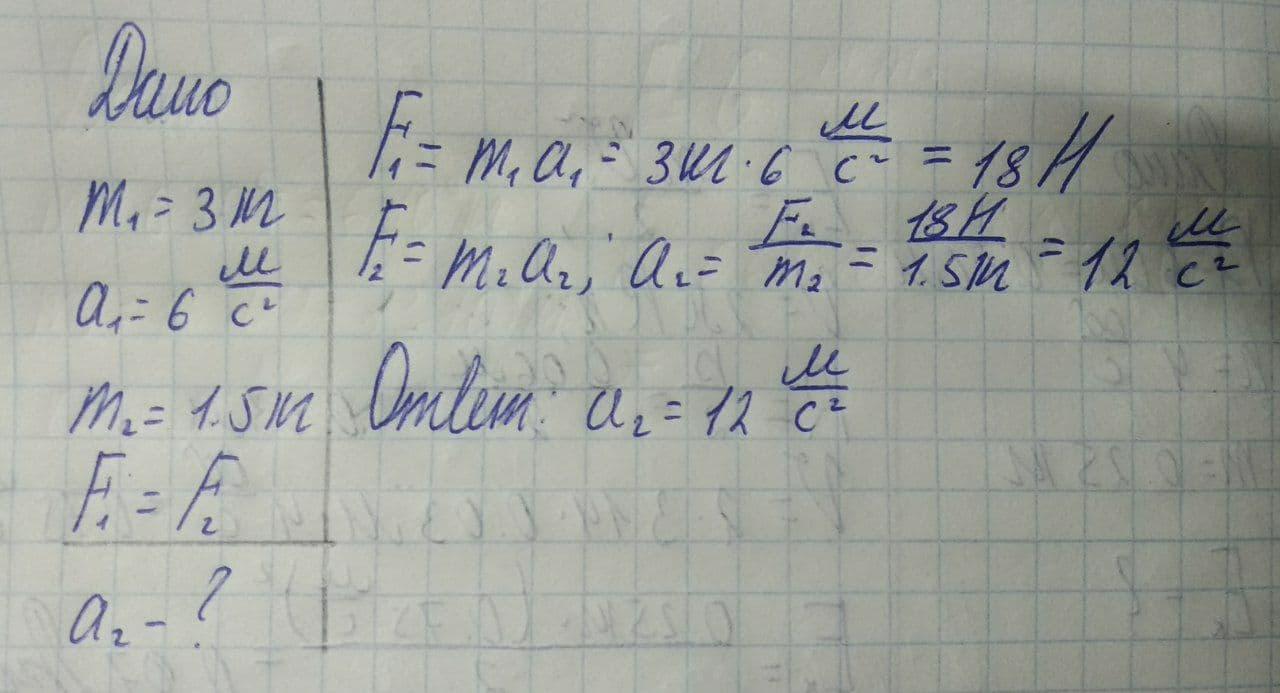 Дано
m₁ = 3 кг
a₁ = 6 м/с²
m₂ = 1.5 кг
F₁ = F₂
a₂ - ?
F₁ = m₁a₁ = 3 кг · 6 м/с² = 18 Н
F₂ = m₂a₂; a₂ = F₂/m₂ = 18 Н/1.5 кг = 12 м/с²
Ответ: a₂ = 12 м/с²